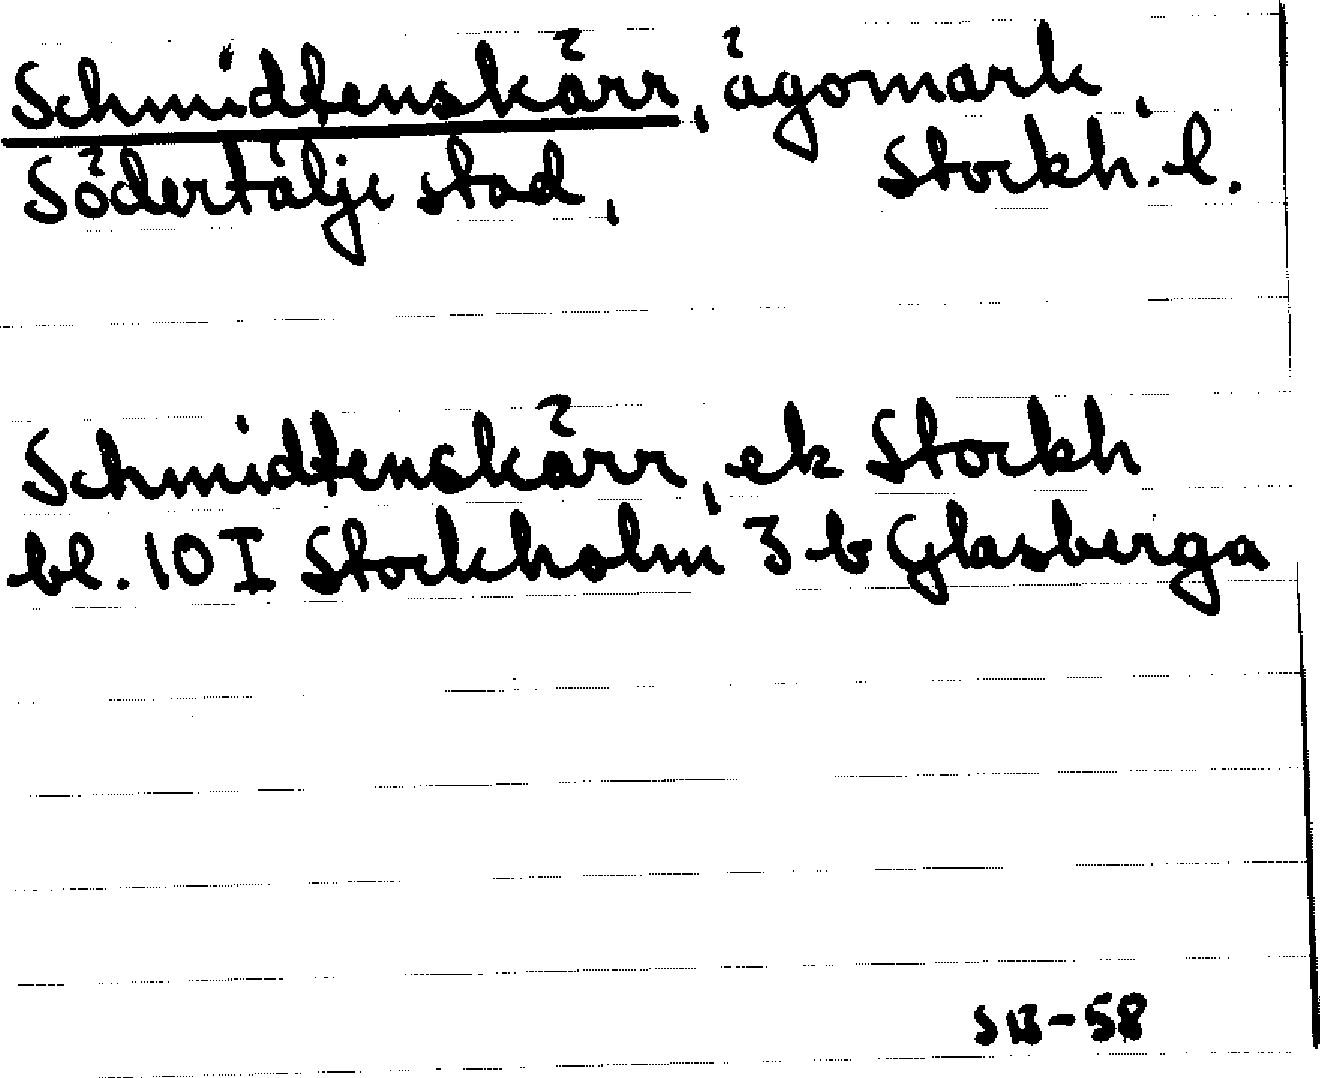 Schmidtenskärr, ägomark,
Södertälje stad, Stockh. l.
Schmidtenskärr, ek Stockh
bl. 10 I Stockholm 3 b Glasberga
SB-58